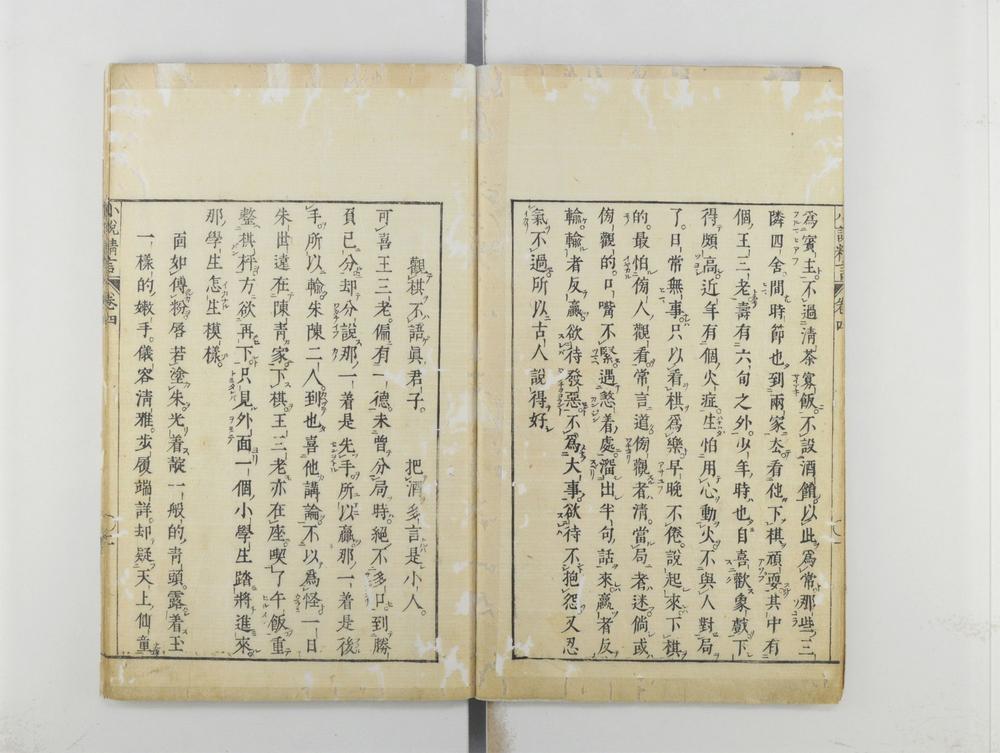 小說精言 卷四
爲賓主不過清茶寡飯。不設酒餚。以此爲常。那些三
隣四舍。間時節也到兩家去看他下棋頑耍其中有
個王三老壽有六旬之外。少年時也自喜歡象戲下
得頗高。近年有個火症。生怕用心動火。不與人對局
了。日常無事。只以看棋爲樂早晚不倦。說起來下棋
的。最怕傍人觀看。常言道傍觀者清。當局者迷。倘或
傍觀的口嘴不緊。遇着處溜出半句話來。贏者反
輸。輸者反贏。欲待發惡。不爲大事。欲待不抱怨又忍
氣不過所以古人說得好
觀棋不語眞君子。 把酒多言是小人。
可喜王三老。偏有一德。未曾分局時。絕不多口。到勝
負已分却分說那一着是先手。所以贏那一着是後
手。所以輸。朱陳二人。到也喜他講論。不以爲怪。一日
朱世遠在陳青家下棋。王三老亦在座。喫了午飯。重
整棋枰。方欲再下。只見外面一個小學生踏將進來。
那學生怎生模樣。
面如傅粉。唇若塗朱。光着靛一般的靑頭。露着玉
一樣的嫩手。儀容清雅。步履端詳。却疑天上仙童
小說精言 卷四